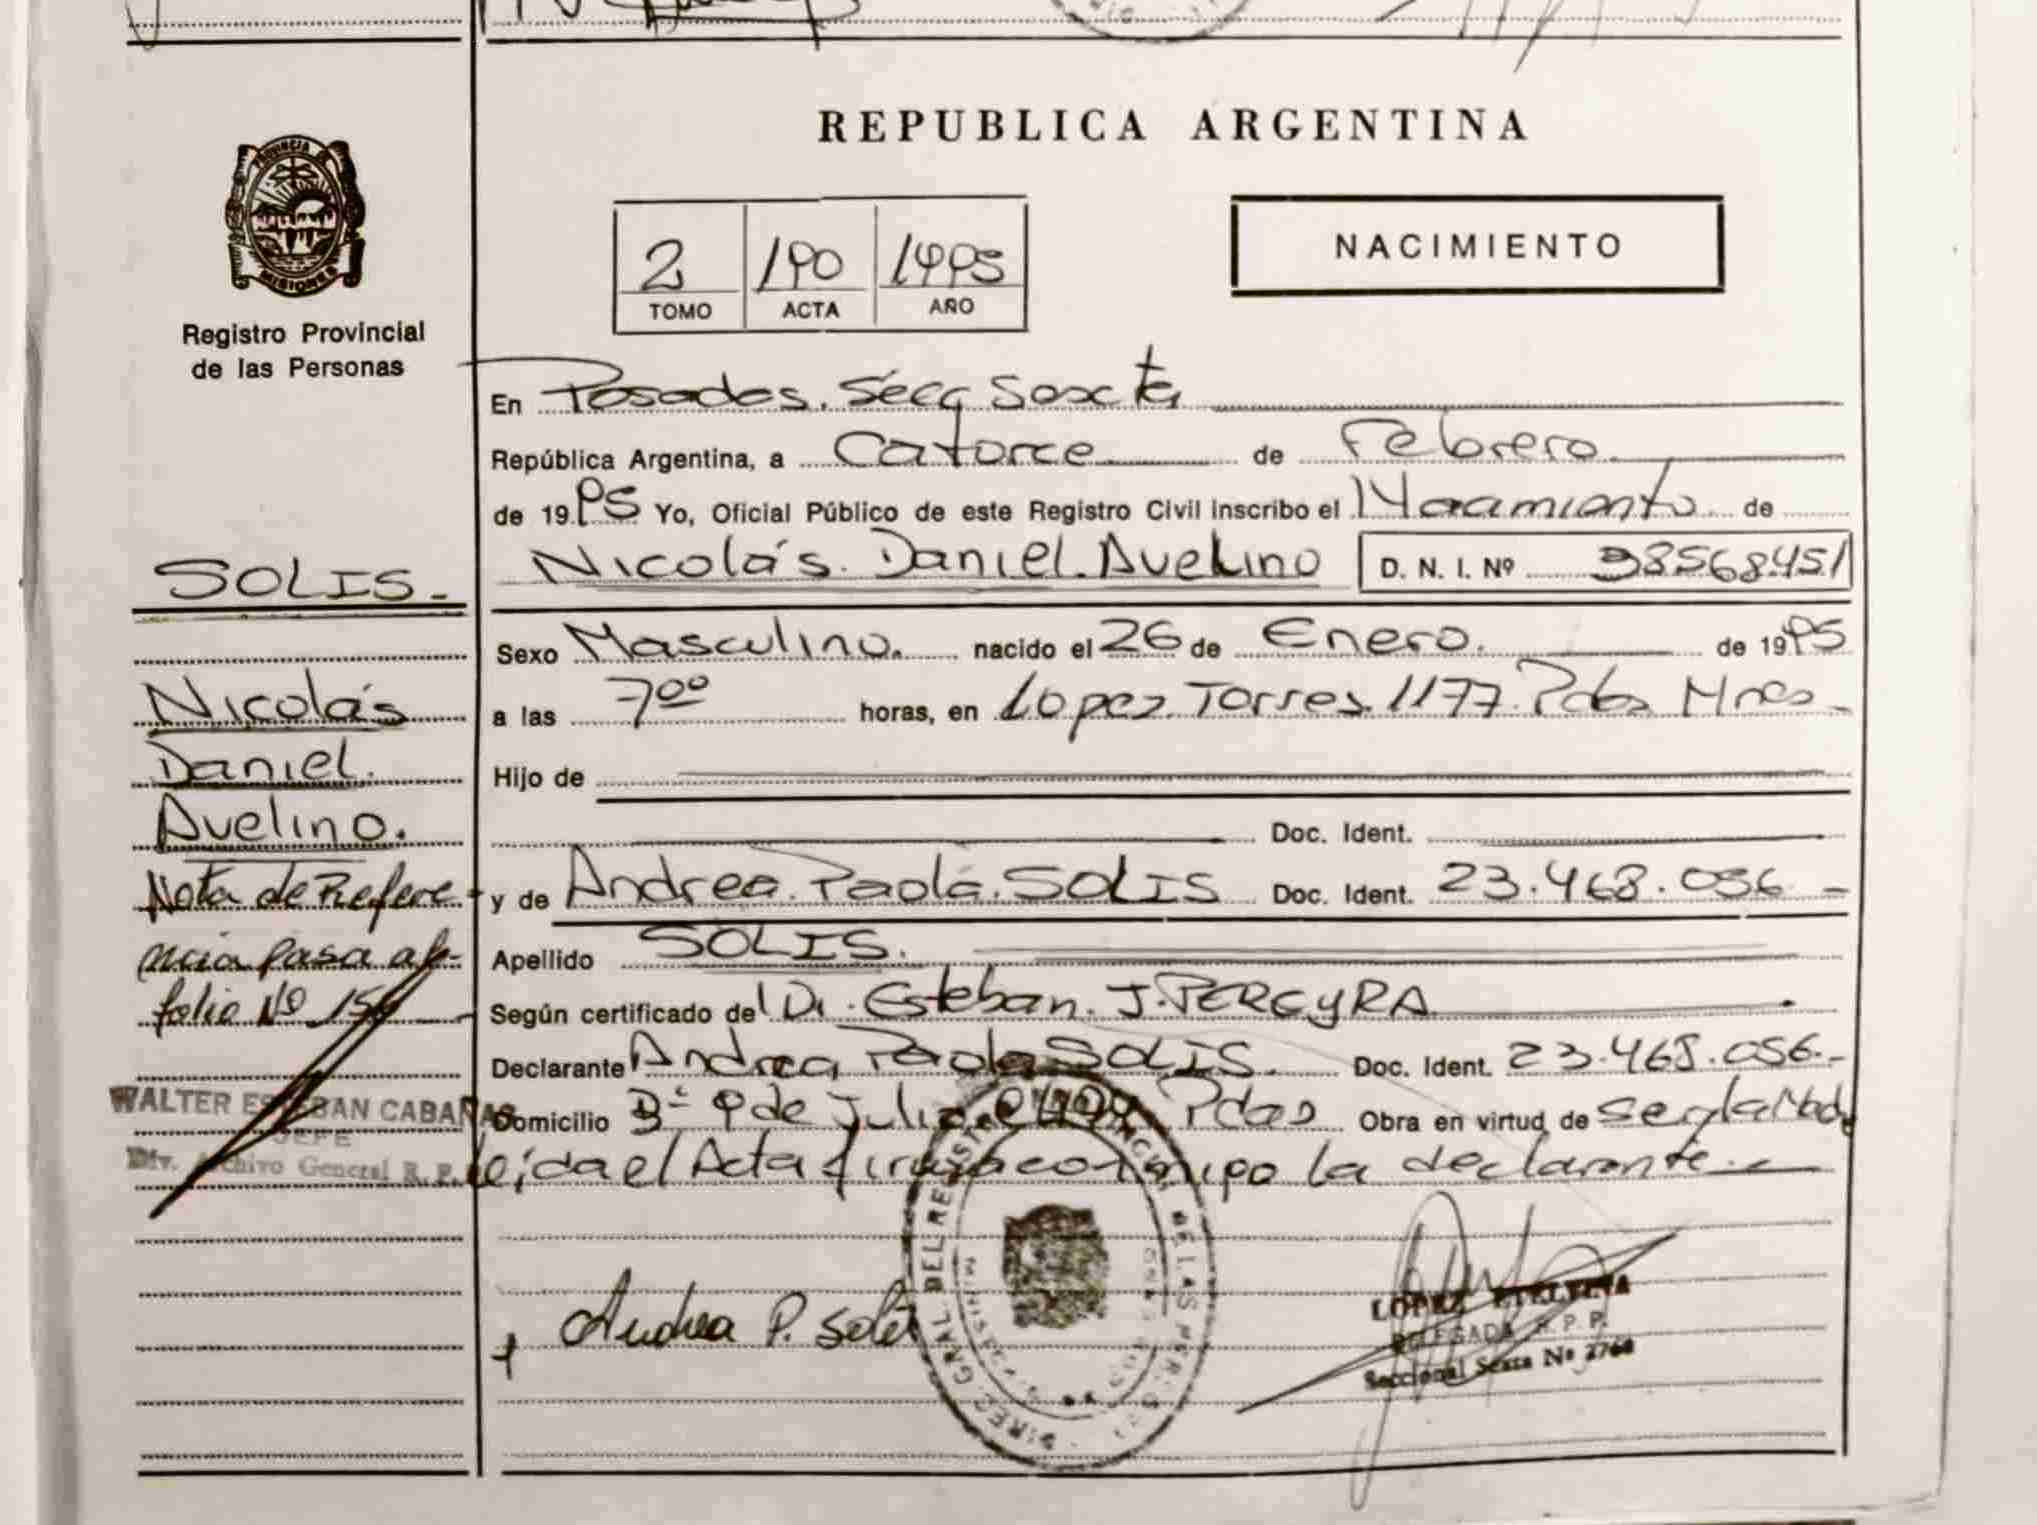 REPUBLICA ARGENTINA
PROVINCIA DE
MISIONES
Registro Provincial
de las Personas
2 190 1995
TOMO ACTA AÑO
NACIMIENTO
En Posadas. Secc Sexta
República Argentina, a Catorce de Febrero
de 1995 Yo, Oficial Público de este Registro Civil inscribo el Nacimiento de
Nicolás Daniel Avelino D. N. I. Nº 38568451
Sexo Masculino. nacido el 26 de Enero. de 1995
a las 7⁰⁰ horas, en Lopez Torres 1177. Pdas Mnes
Hijo de
Doc. Ident.
y de Andrea Paola SOLIS Doc. Ident. 23.468.056
Apellido SOLIS.
Según certificado del Dr. Esteban J. PEREYRA
Declarante Andrea Paola SOLIS. Doc. Ident. 23.468.056.-
Domicilio Bº 9 de Julio Pdas Obra en virtud de
leida el Acta firma conmigo la declarante
SOLIS.-
Nicolás
Daniel.
Avelino.
Nota de Refere
ncia pasa al
folio Nº
WALTER ESTEBAN CABAÑAS
JEFE
Div. Archivo General R. P.
Andrea P. Solis
DIREC. GRAL. DEL REGISTRO PROVINCIAL DE LAS PERSONAS
LOPEZ ETELVINA
DELEGADA R. P. P.
Seccional Sexta Nº